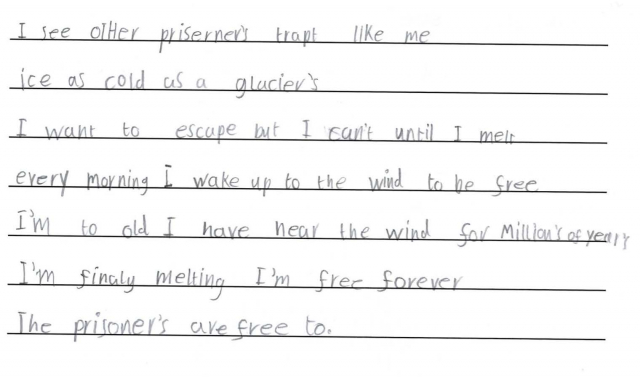 I see other priserner's trapt like me
ice as cold as a glacier's
I want to escape but I can't until I melt
every morning I wake up to the wind to be free
I'm to old I have hear the wind for Million's of years
I'm finaly melting I'm free forever
The prisoner's are free to.